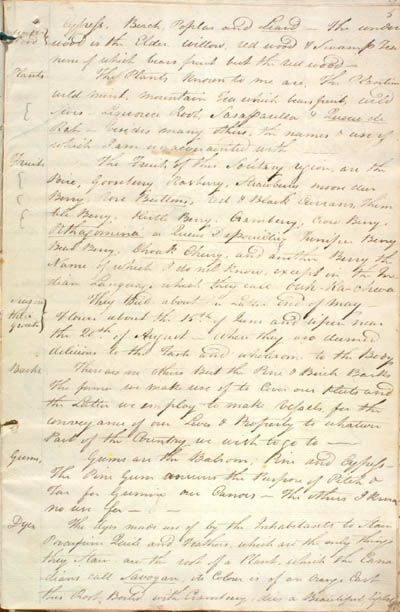 Cypress. Beach, Poplar and Liard — The under
wood is the Elder willow, red wood & Swamp Tea
none of which bears fruit but the red wood —
Plants The Plants known to me are, The Plantin
wild mint, mountain Tea which bears fruit, wild
Liquorice Root, Sarsaparilla & Queue de
Rat — besides many others, the names & use of
which I am unacquainted with
Fruits The Fruits of this Solitary region, are the
Gooseberry Rasberry, Strawberry moose
Berry Rose Buttons, Red & Black Currans, Thim
ble Berry. Hurtle Berry. Cranberry, Crow Berry.
Juniper Berry
Bear Berry, Choak Cherry, and another Berry the
Name of which I do not know, except in the In
dian Language, which they call
They Bud about the latter end of May
flower about the 15th of June and ripen near
the 20th of August — when they are deemed
delicious to the Taste and wholesom to the Body
Barks There are no others But the Pine & Birch Barks
The former we make use of to Cover our Huts and
the Latter we employ to make Vessels for the
conveyance of our Lives & Property to whatever
Part of the Country we wish to go to —
Gums, Gums are the Balsom, Pine and Cypress —
The Pine Gum answers the Purpose of Pitch &
Tar for Guming our Canoes — The others I know
no use for —
Dyes The Dyes made use of by the Inhabitants to Stain
Porcupine Quils and Feathers, which are the only things
they Stain are the root of a Plant, which the Cana
dians call Savoyan, its Colour is of an orange Cast
this Root Boiled with Cranberry, dies a Beautiful